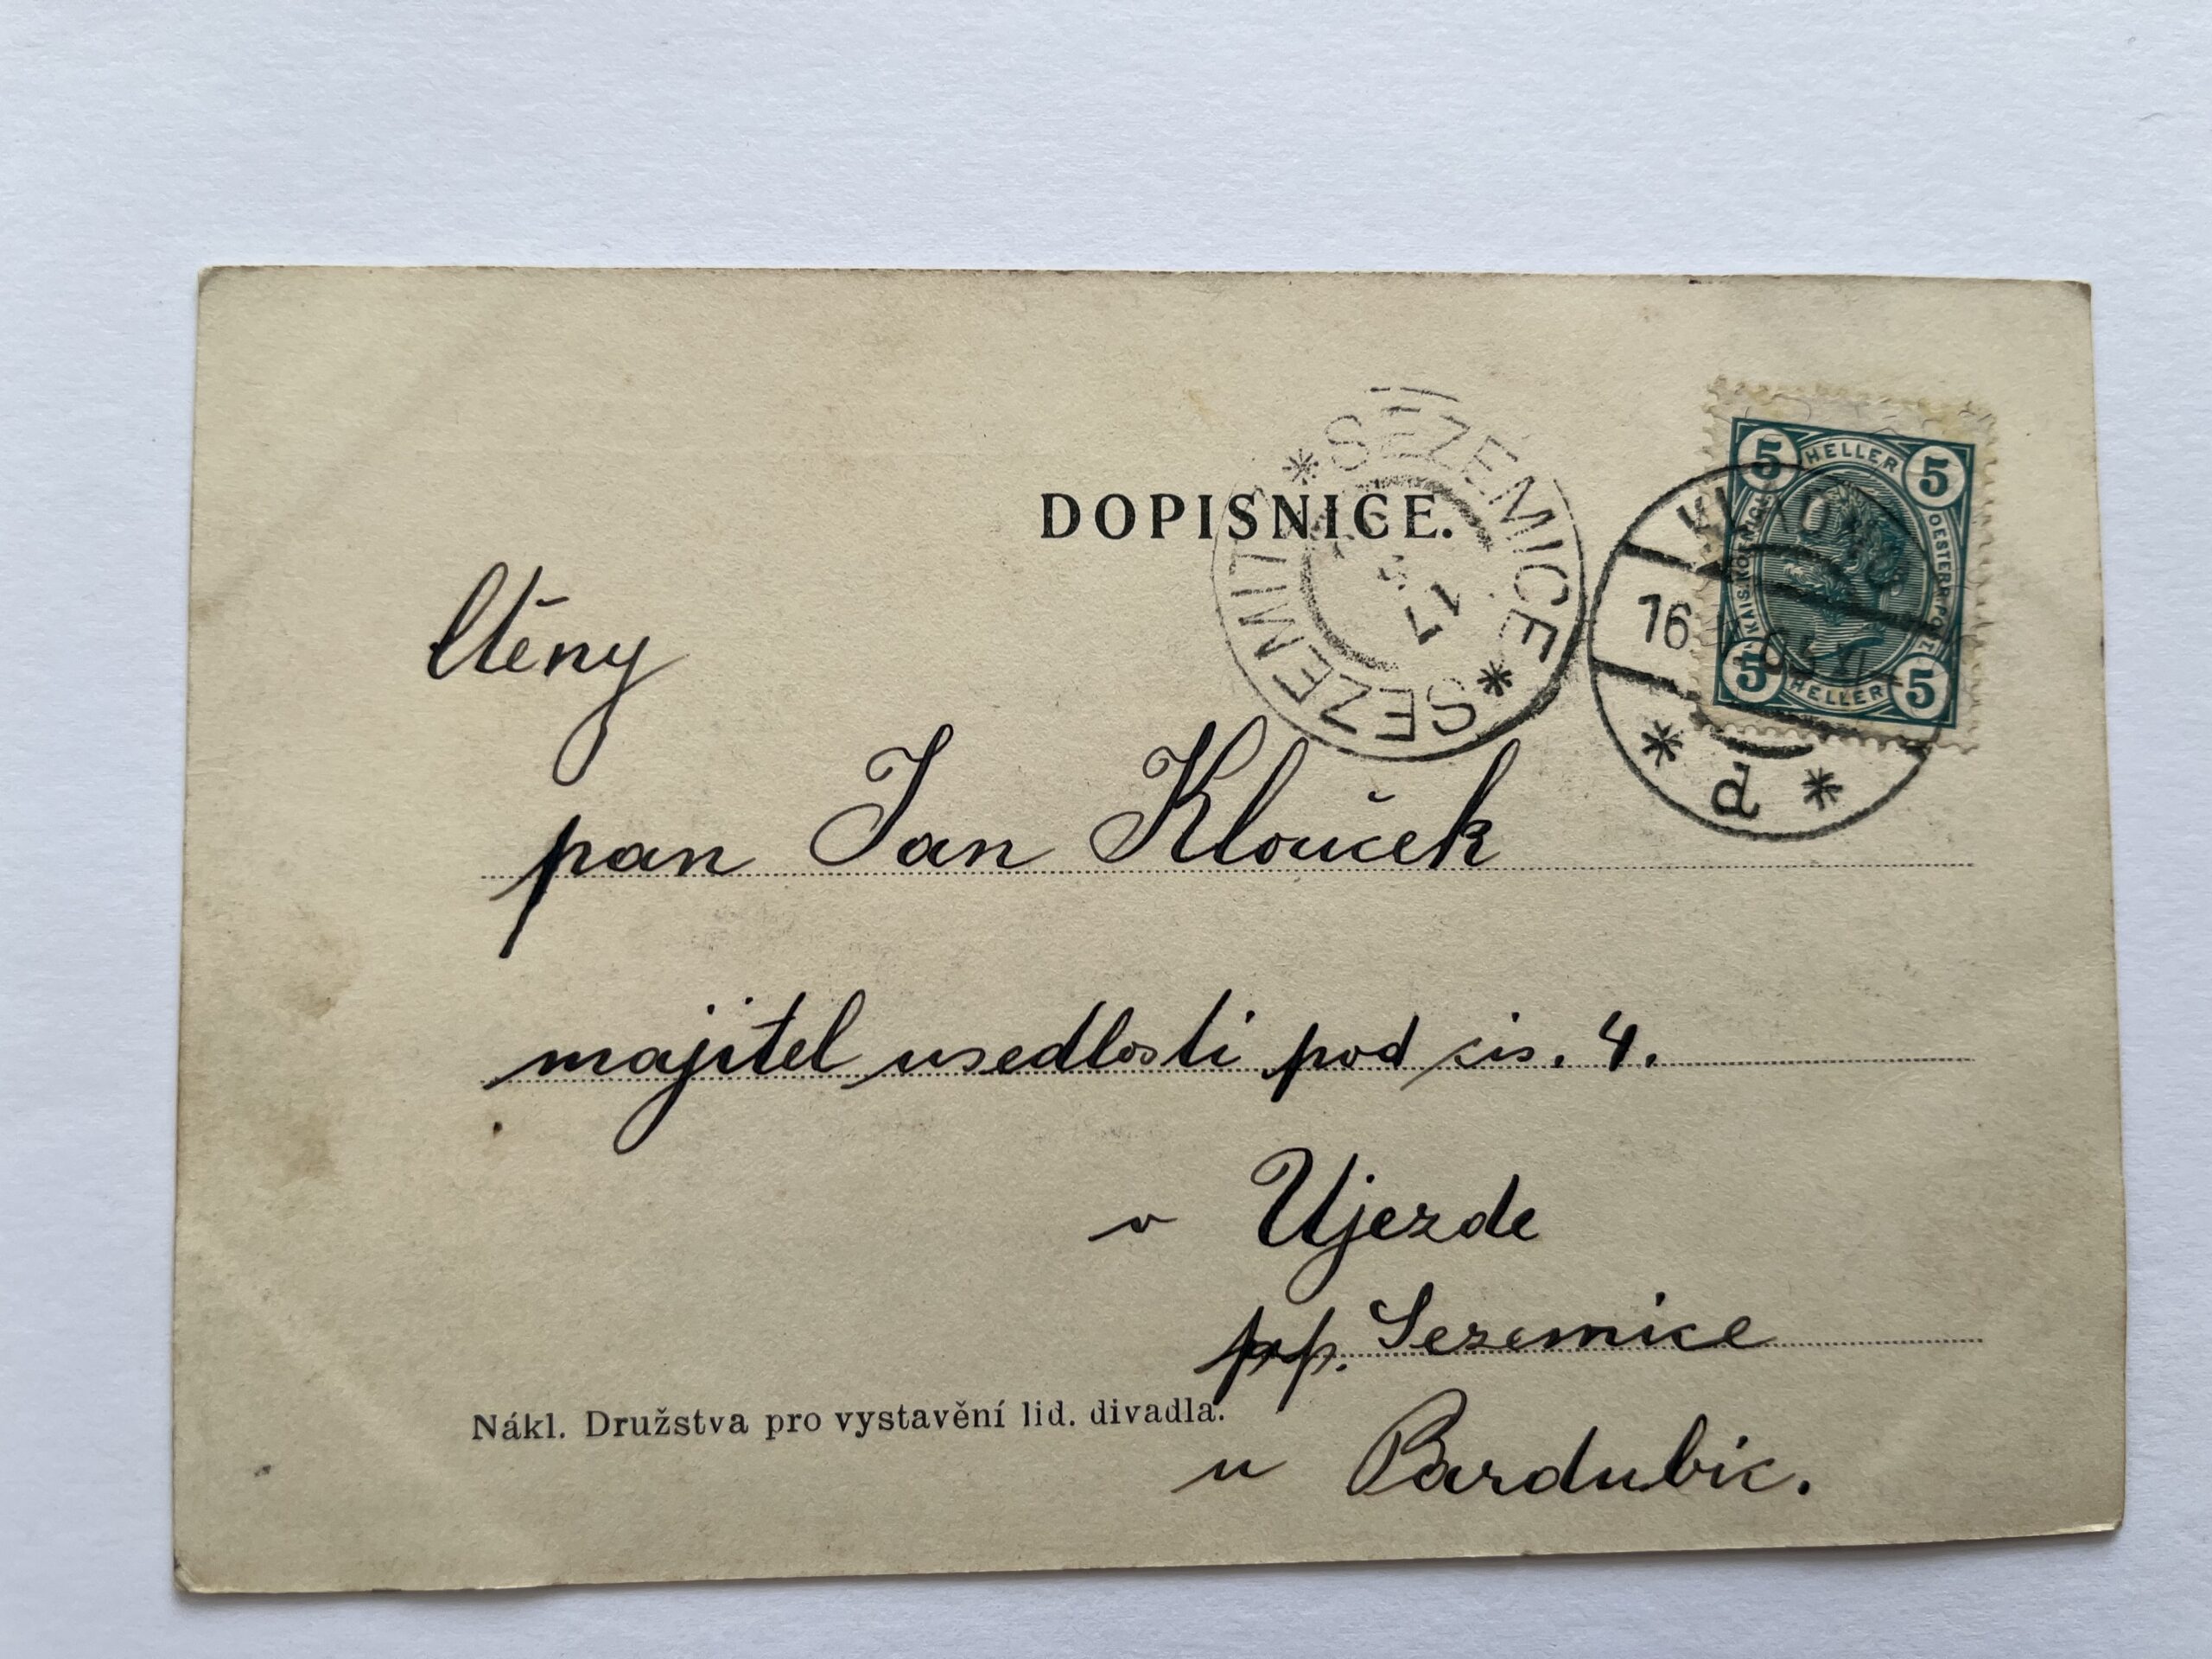 DOPISNICE.
SEZEMICE * SEZEMIT *
17
5 HELLER 5
KAIS. KOENIGL. OESTERR. POST.
5 HELLER 5
16
* d *
Ctěny
pan Jan Klouček
majitel usedlosti pod čis. 4.
v Ujezde
pp. Sezemice
Nákl. Družstva pro vystavění lid. divadla.
u Pardubic.